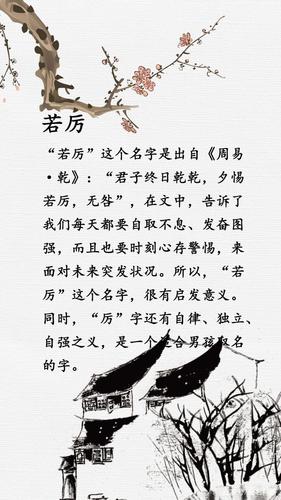 若厉
“若厉”这个名字是出自《周易
·乾》：“君子终日乾乾，夕惕
若厉，无咎”，在文中，告诉了
我们每天都要自取不息、发奋图
强，而且也要时刻心存警惕，来
面对未来突发状况。所以，“若
厉”这个名字，很有启发意义。
同时，“厉”字还有自律、独立、
自强之义，是一个适合男孩取名
的字。